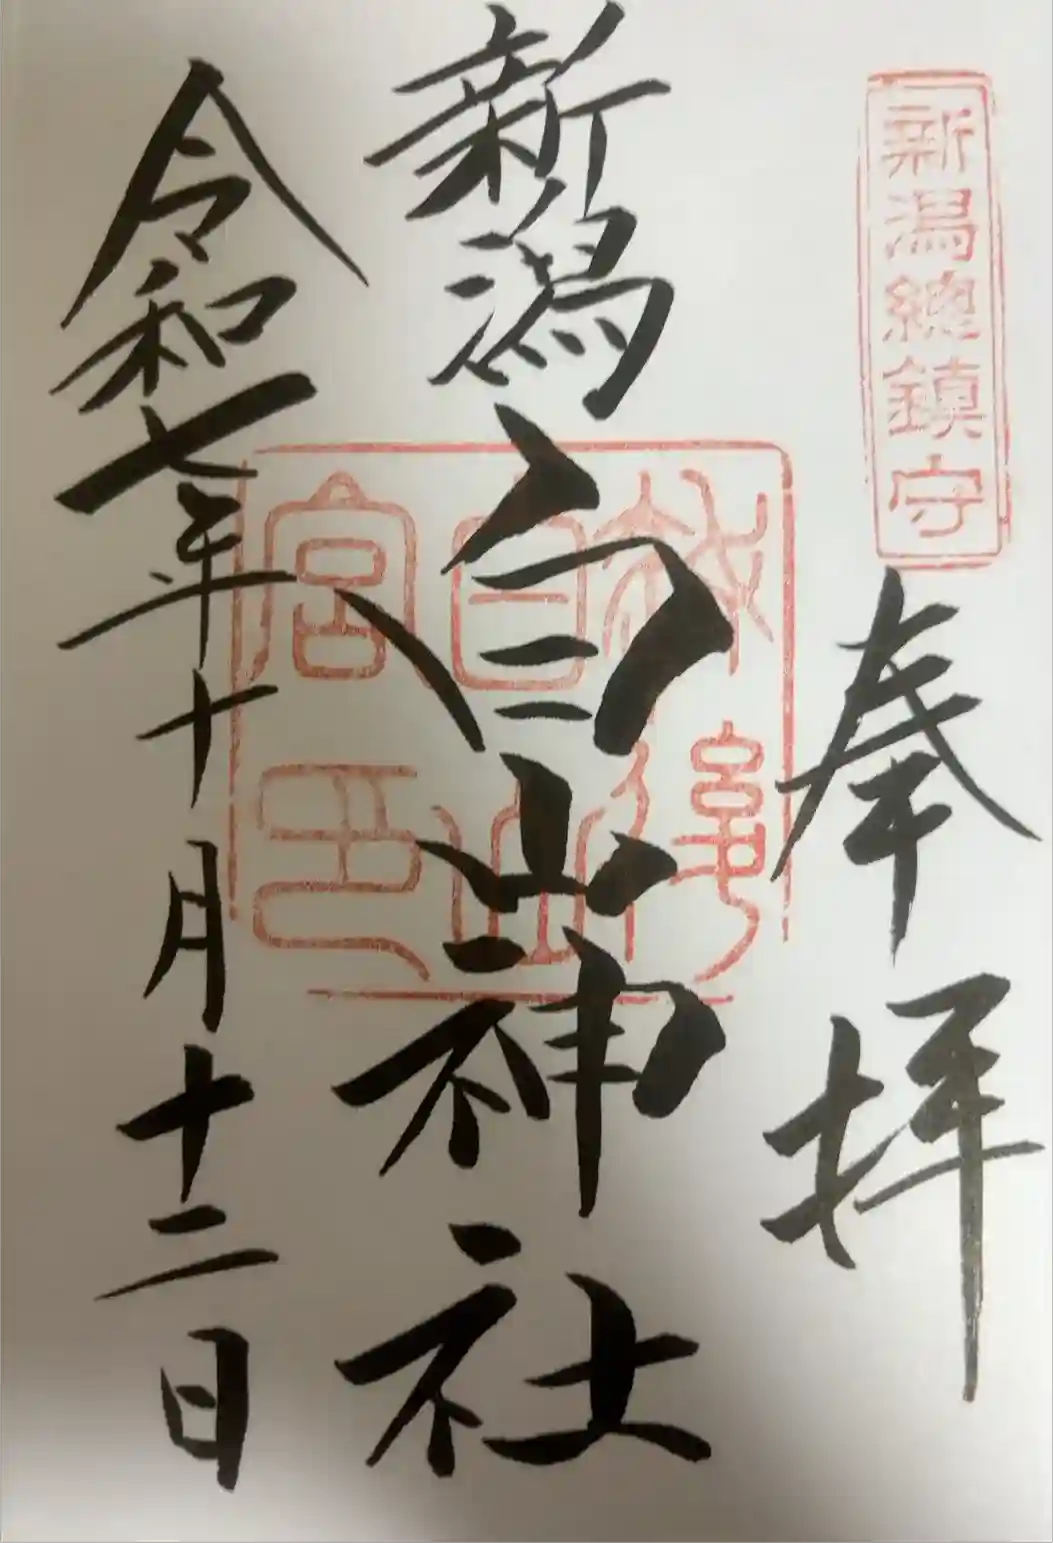 新潟總鎮守
奉拝
新潟白山神社
越後
白山
宮印
令和七年十月十二日